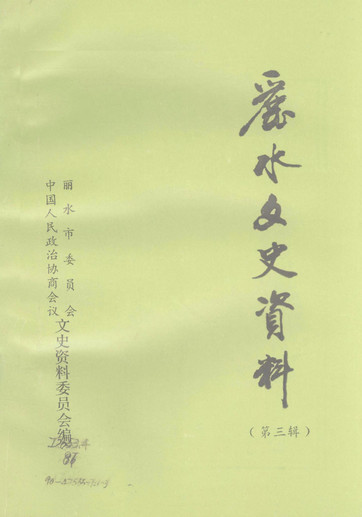 麗水文史資料
(第三辑)
中国人民政治协商会议
丽水市委员会
文史资料委员会编